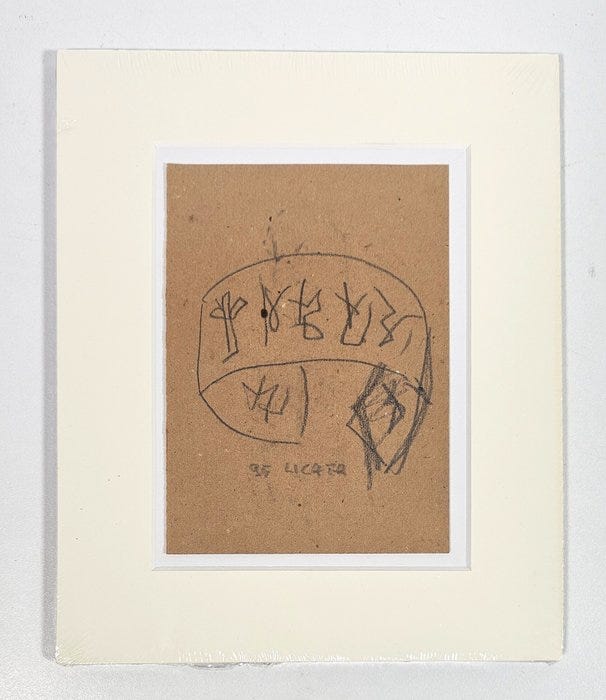 95 LICATA